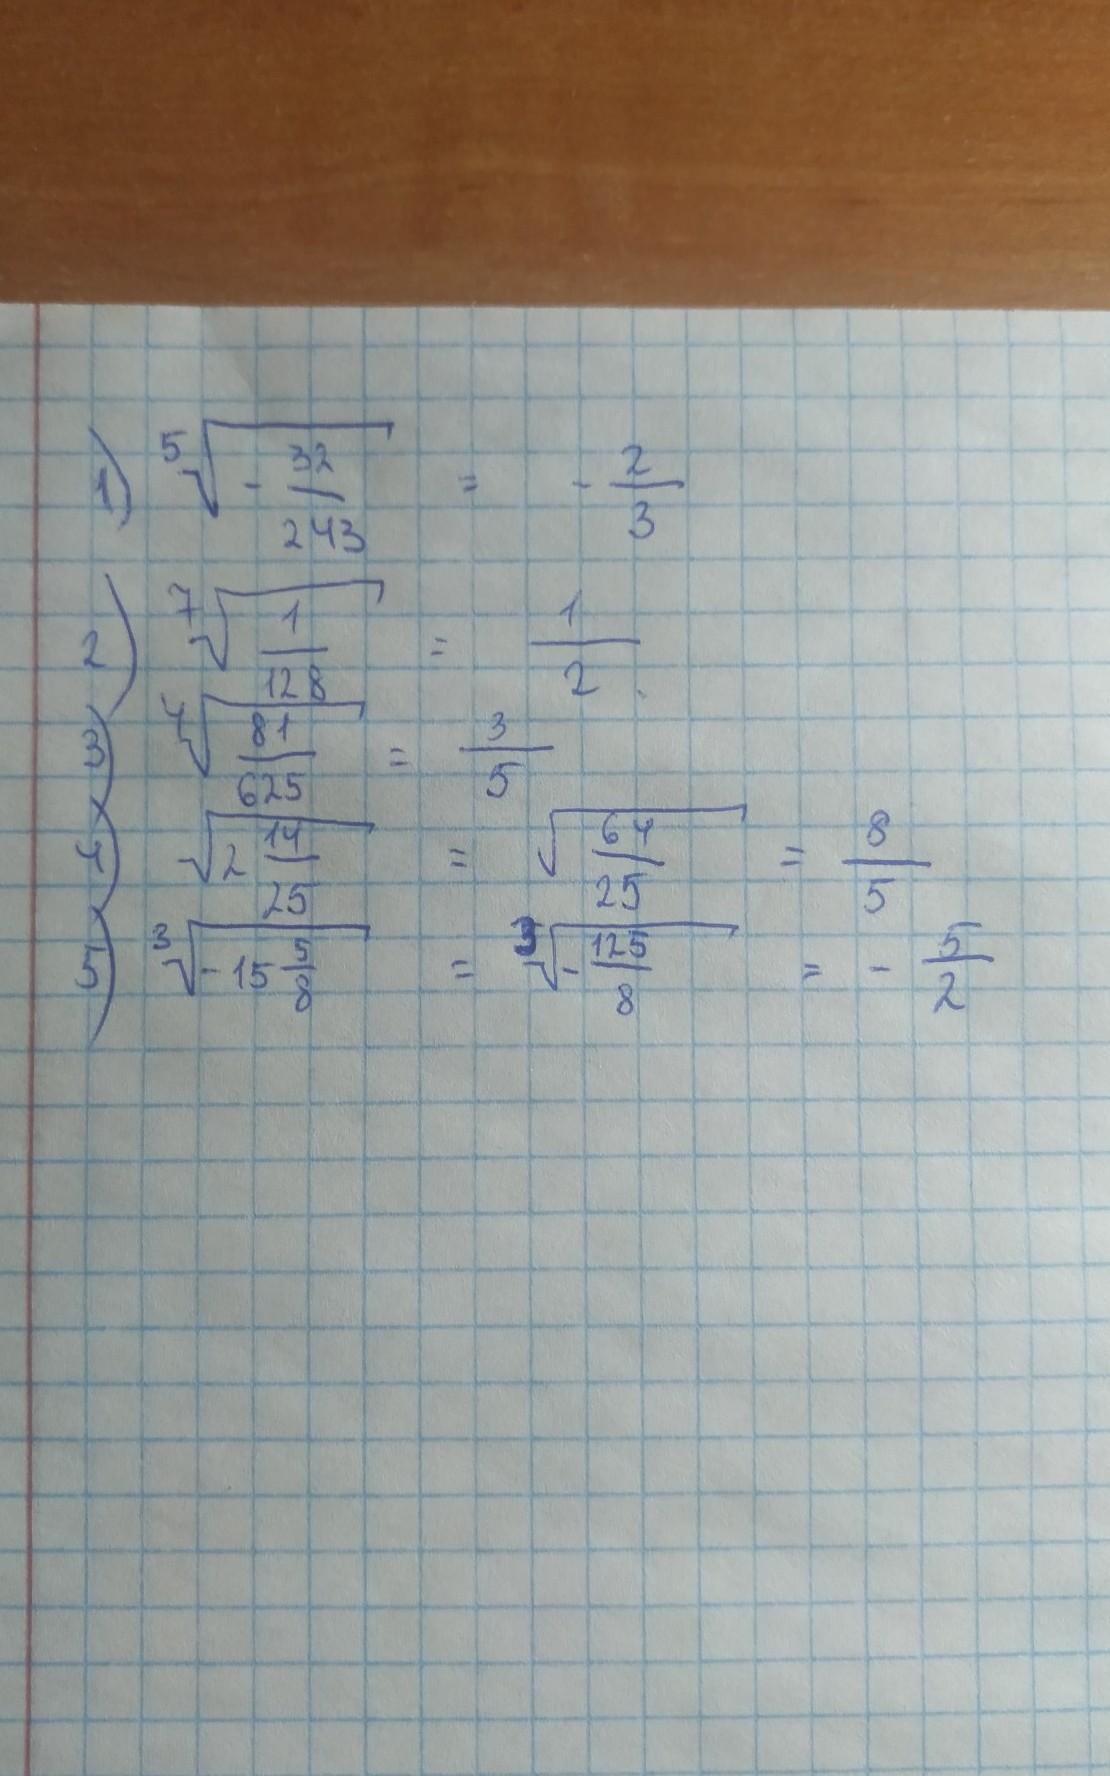 1) ⁵√(- 32/243) = - 2/3
2) ⁷√(1/128) = 1/2
3) ⁴√(81/625) = 3/5
4) √(2 14/25) = √(64/25) = 8/5
5) ³√(-15 5/8) = ³√(- 125/8) = - 5/2